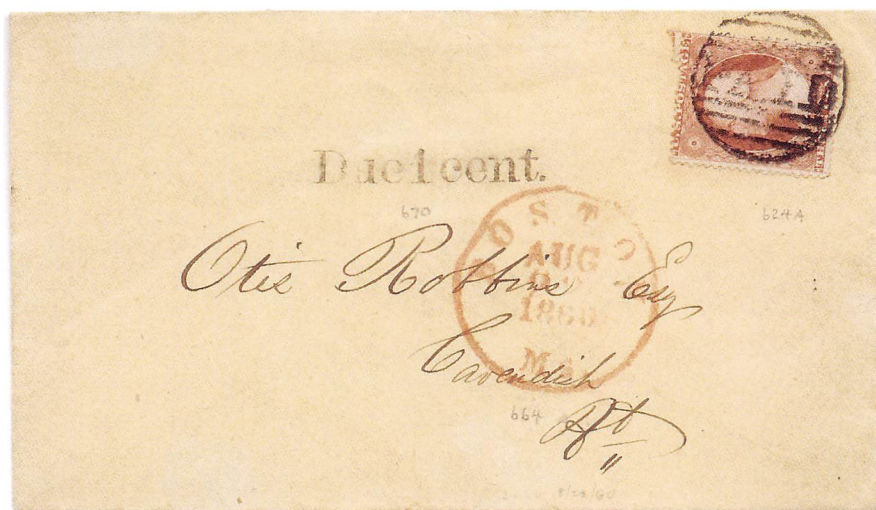 Due 1 cent.
670
624A
BOSTON
AUG
1860
MAS
Otis Robbins Esq
Cavendish
Vt
664
8/22/60